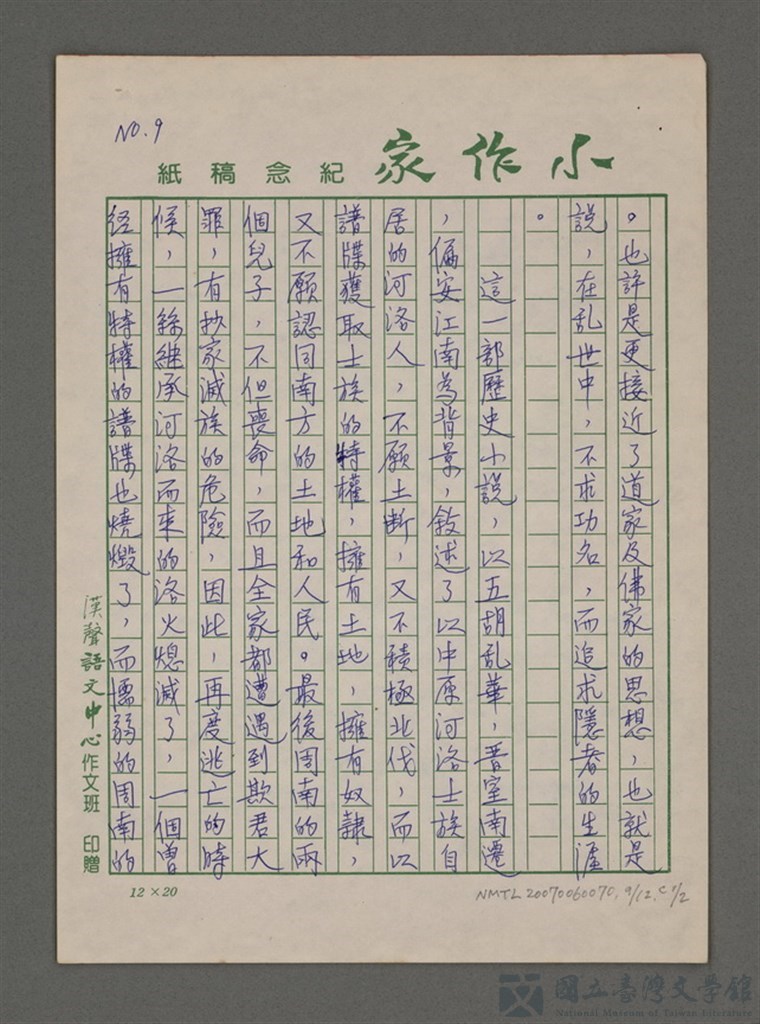 NO. 9
小作家 紀念稿紙
。也許是更接近了道家及佛家的思想,也就是
說,在乱世中,不求功名,而追求隱者的生涯
。
這一部歷史小說,以五胡乱華,晋室南遷
,偏安江南為背景,敘述了以中原河洛士族自
居的河洛人,不願土断,又不積極北伐,而以
譜牒獲取士族的特權,擁有土地,擁有奴隸,
又不願認同南方的土地和人民。最後周南的兩
個兒子,不但喪命,而且全家都遭遇到欺君大
罪,有抄家滅族的危險,因此,再度逃亡的時
候,一絲継承河洛而来的洛火熄滅了,一個曾
经擁有特權的譜牒也燒燬了,而懦弱的周南的
漢聲語文中心作文班 印贈
12×20
NMTL 20070060070, 9/12, c 1/2
國立臺灣文學館
National Museum of Taiwan Literature